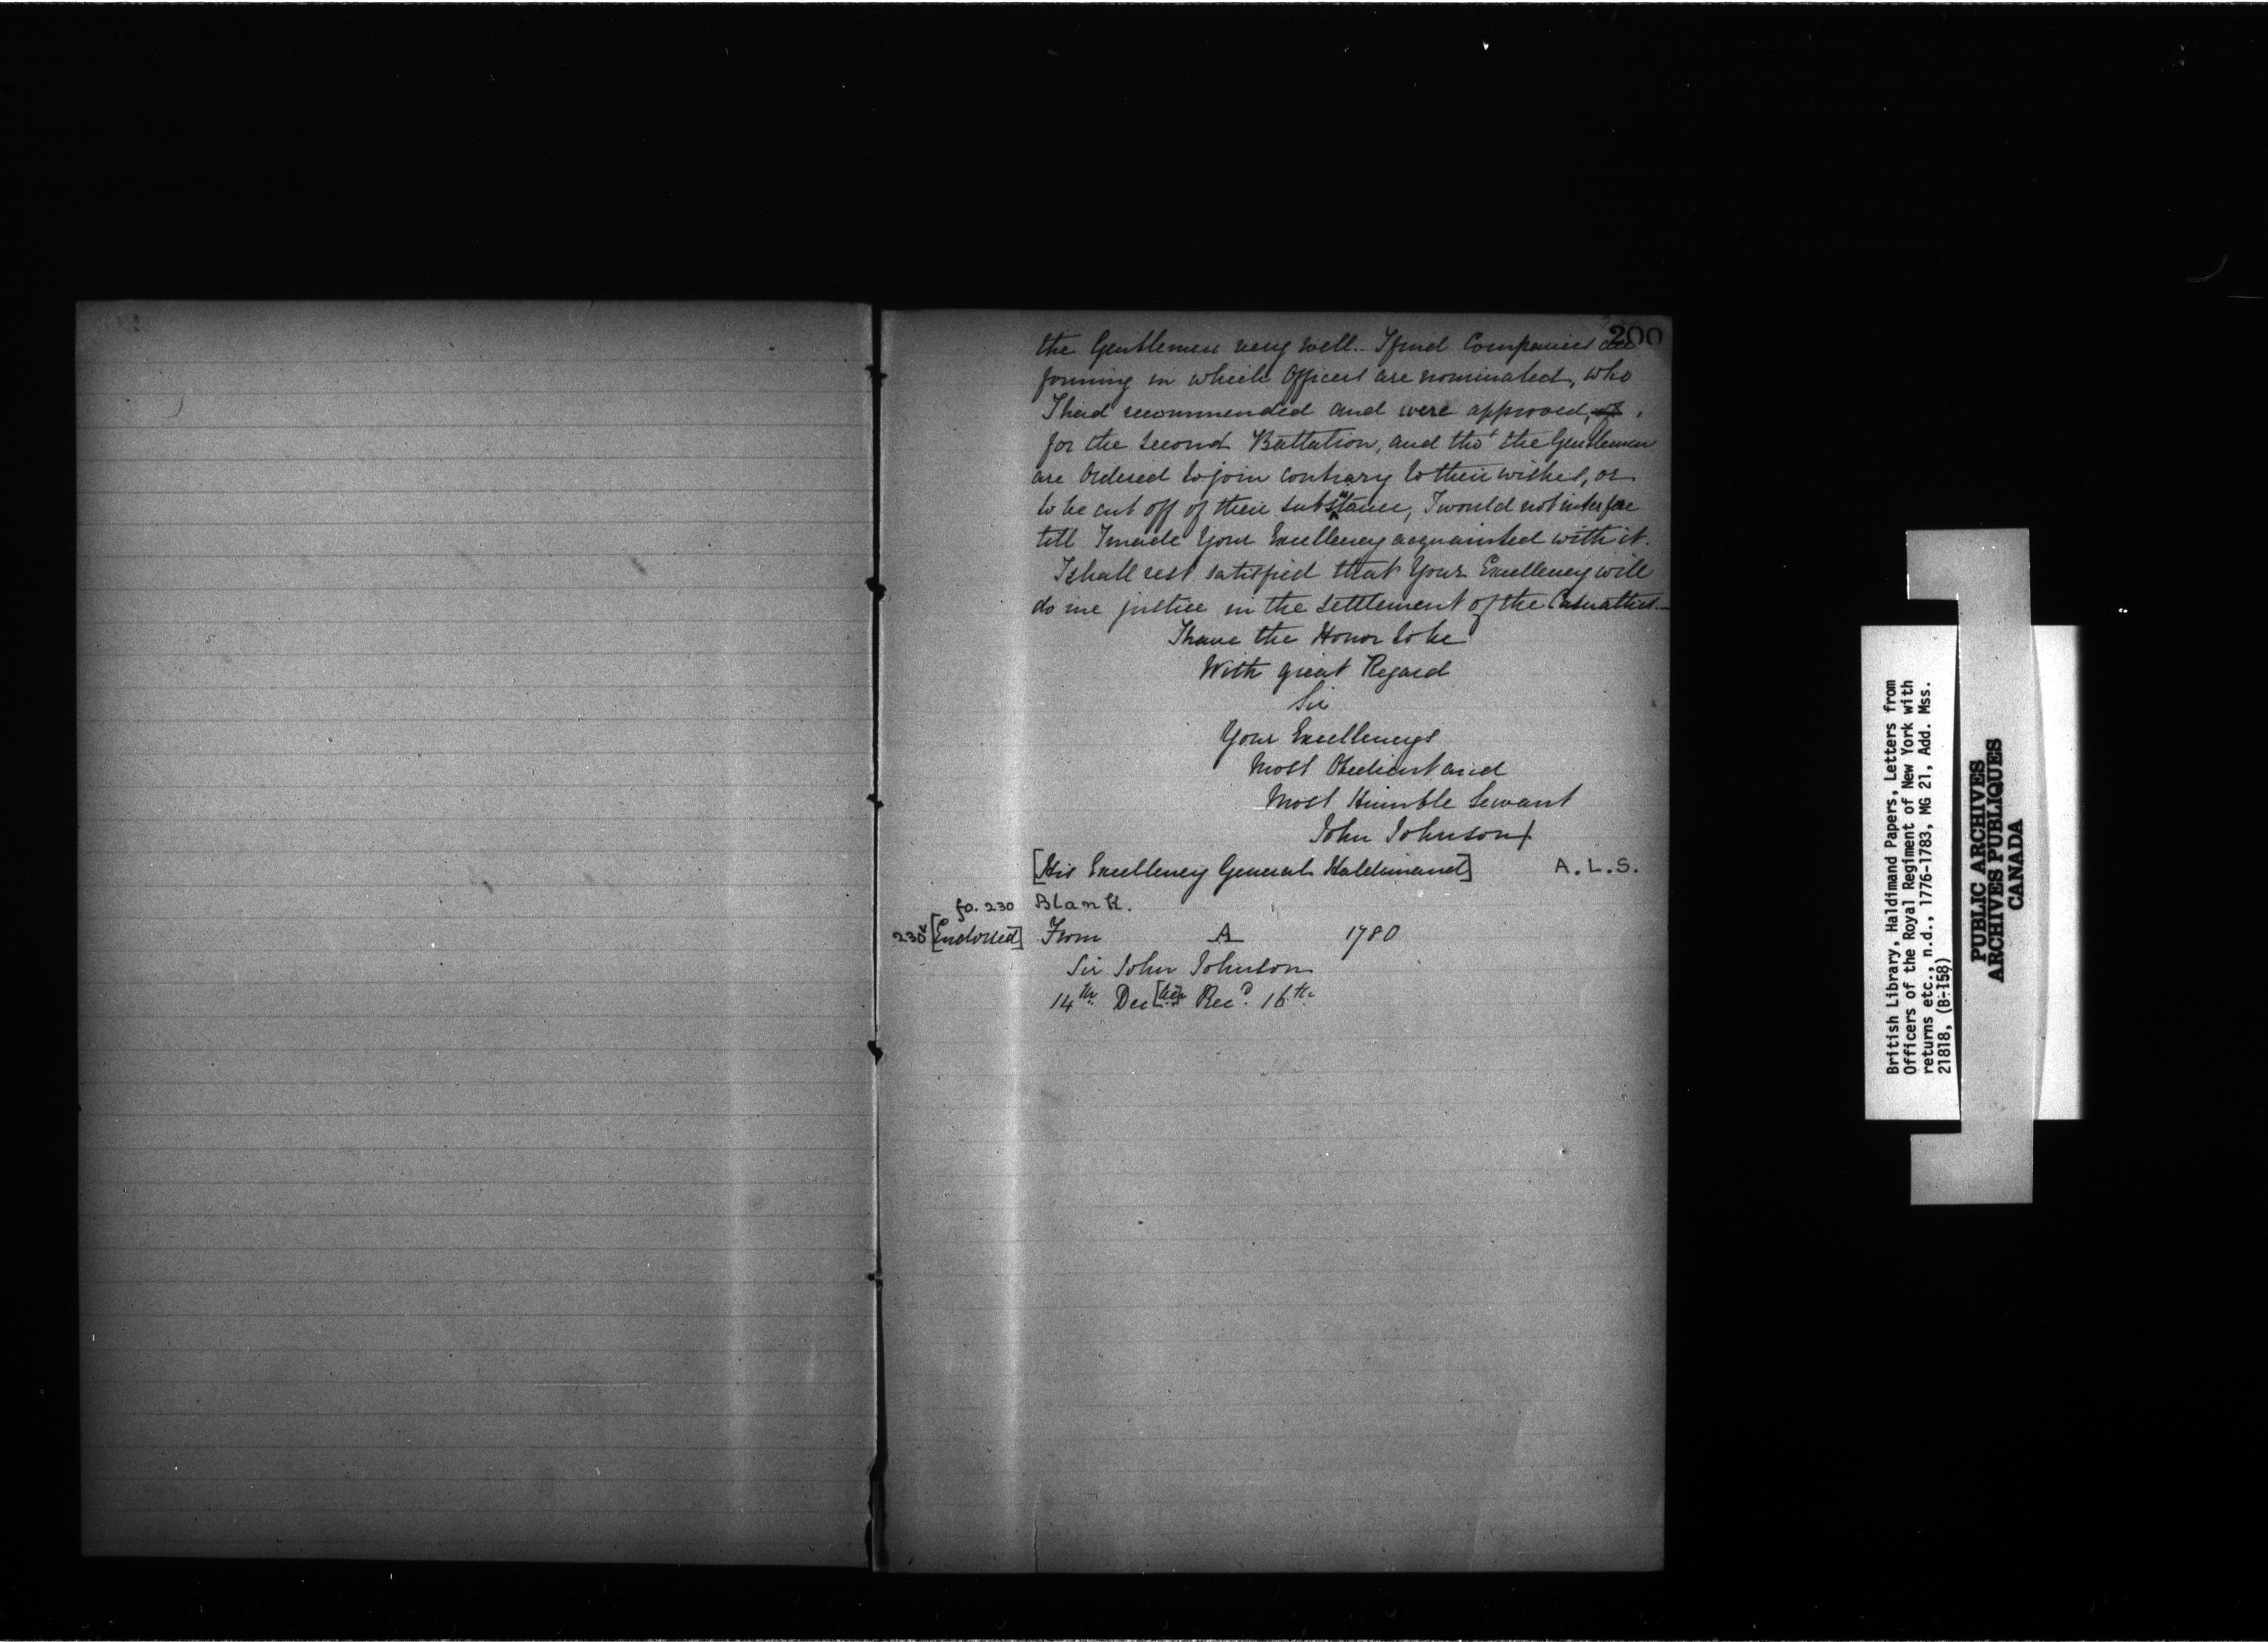 200
the Gentlemen very well.. I find Companies are
forming in which Officers are nominated, who
I had recommended and were approved, of,
for the Second Battalion, and tho' the Gentlemen
are Ordered to join contrary to their wishes, or
to be cut off of their substance, I would not interfere
till I made Your Excellency acquainted with it.
I shall rest satisfied that Your Excellency will
do me justice in the settlement of the Casualties.—
I have the Honor to be
With great Regard
Sir
Your Excellencys
Most Obedient and
Most Humble Servant
John Johnson
[His Excellency General Haldimand] A.L.S.
fo. 230 Blank.
230v [Endorsed] From A 1780
Sir John Johnson
14th Dec[br] Recd. 16th
British Library, Haldimand Papers, Letters from
Officers of the Royal Regiment of New York with
returns etc., n.d., 1776-1783, MG 21, Add. Mss.
21818, (B-158)
PUBLIC ARCHIVES
ARCHIVES PUBLIQUES
CANADA